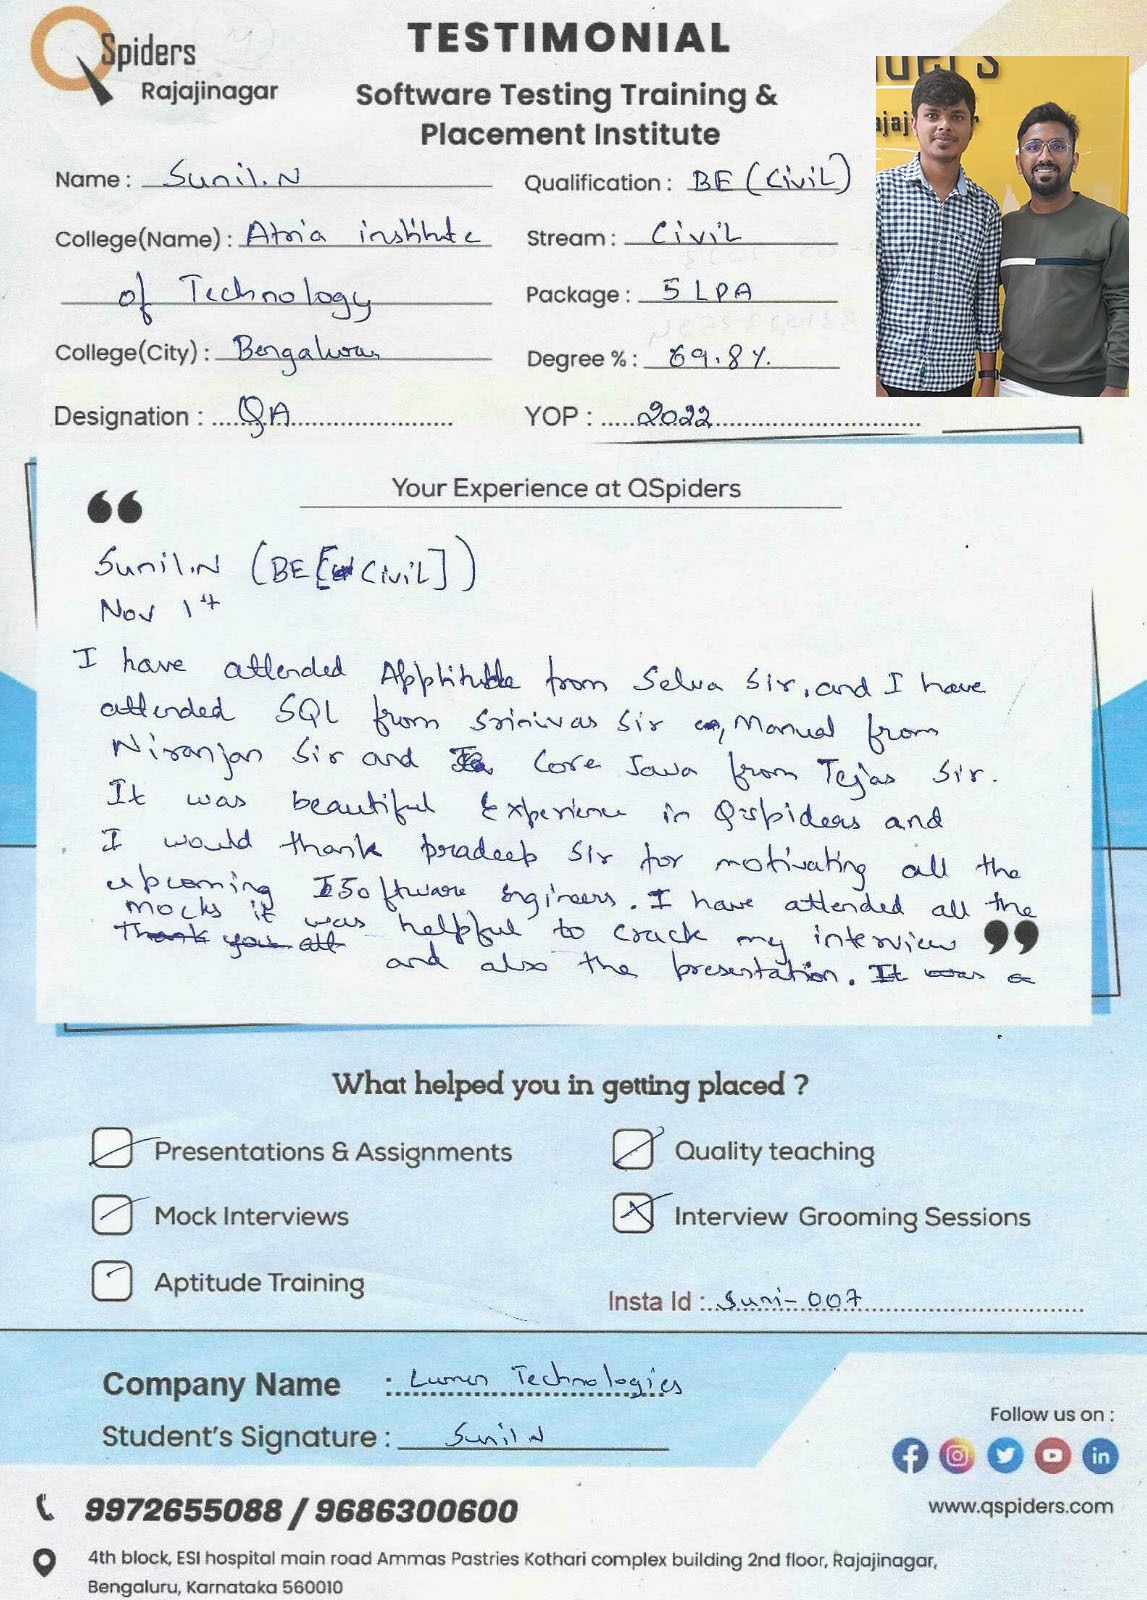 QSpiders
Rajajinagar
TESTIMONIAL
Software Testing Training &
Placement Institute
Name : Sunil.N
Qualification : BE (CiviL)
College(Name) : Atria institute
of Technology
Stream : CiviL
Package : 5 LPA
College(City) : Bengaluru
Degree % : 69.8%
Designation : QA
YOP : 2022
Your Experience at QSpiders
“
Sunil.N (BE[CiviL])
Nov 1st
I have attended Apptitude from Selva Sir, and I have
attended SQL from Srinivas Sir, Manual from
Niranjan Sir and Core Java from Tejas Sir.
It was beautiful Experience in Qspiders and
I would thank pradeep Sir for motivating all the
upcoming Software Engineers. I have attended all the
mocks it was helpful to crack my interview ”
Thank you all
and also the presentation. It was a
What helped you in getting placed ?
Presentations & Assignments
Quality teaching
Mock Interviews
Interview Grooming Sessions
Aptitude Training
Insta Id : Suni-007
Company Name : Lumen Technologies
Student's Signature : Sunil N
Follow us on :
www.qspiders.com
9972655088 / 9686300600
4th block, ESI hospital main road Ammas Pastries Kothari complex building 2nd floor, Rajajinagar,
Bengaluru, Karnataka 560010